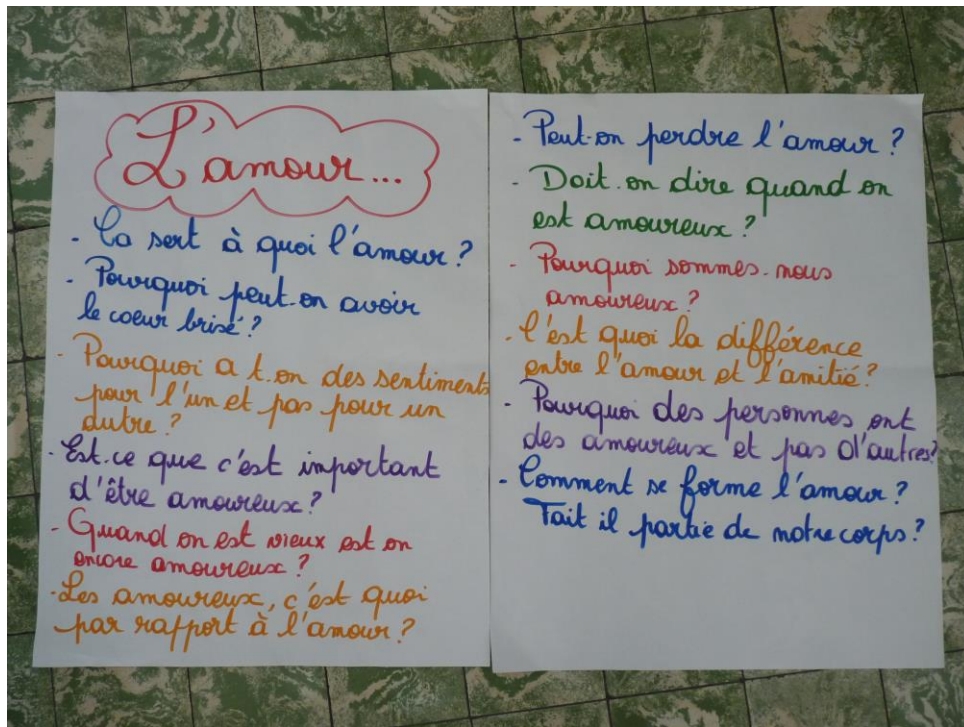 L'amour...
- Ca sert à quoi l'amour ?
- Pourquoi peut-on avoir
le coeur brisé ?
- Pourquoi a t-on des sentiments
pour l'un et pas pour un
autre ?
- Est-ce que c'est important
d'être amoureux ?
- Quand on est vieux est on
encore amoureux ?
- Les amoureux, c'est quoi
par rapport à l'amour ?
- Peut-on perdre l'amour ?
- Doit-on dire quand on
est amoureux ?
- Pourquoi sommes-nous
amoureux ?
- C'est quoi la différence
entre l'amour et l'amitié ?
- Pourquoi des personnes ont
des amoureux et pas d'autres ?
- Comment se forme l'amour ?
Fait il partie de notre corps ?